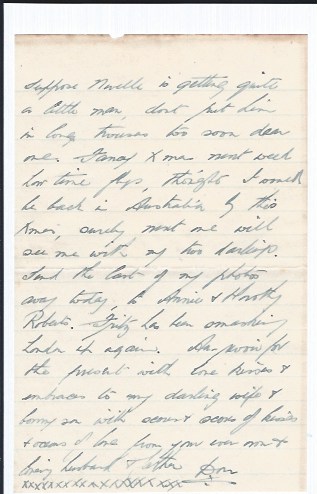 suppose Neville is getting quite
a little man, dont put him
in long trousers too soon dear
one. Fancy Xmas next week
how time flys, thought I would
be back in Australia by this
Xmas, surely next one will
see me with my two darlings.
Send the last of my photos
away today, to Annie & Horothy
Roberts. Fritz has been smashing
London up again. Au revoir for
the present with love kisses &
embraces to my darling wife &
bonny son with scores & scores of kisses
& oceans of love from your ever own &
loving husband & father Don
xxxxxxxxxxxxxxxxxxx